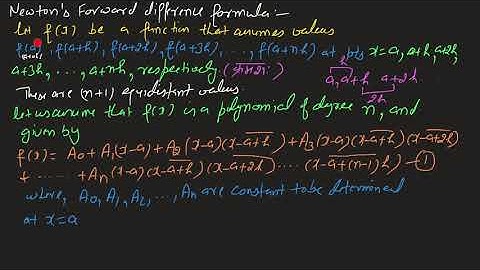 Newton's Forward difference formula:-
Let f(x) be a function that assumes values
f(a), f(a+h), f(a+2h), f(a+3h), ..., f(a+nh) at pts x=a, a+h, a+2h,
a+3h, ..., a+nh, respectively. h h
a, a+h a+2h
2h
These are (n+1) equidistant values.
Let us assume that f(x) is a polynomial of degree n, and
given by
f(x) = A₀+A₁(x-a)+A₂(x-a)(x-a+h)+A₃(x-a)(x-a+h)(x-a+2h)
+ ..... +Aₙ(x-a)(x-a+h)(x-a+2h) .... (x-a+(n-1)h) —①
where, A₀, A₁, A₂, ..., Aₙ are constant to be determined
at x=a